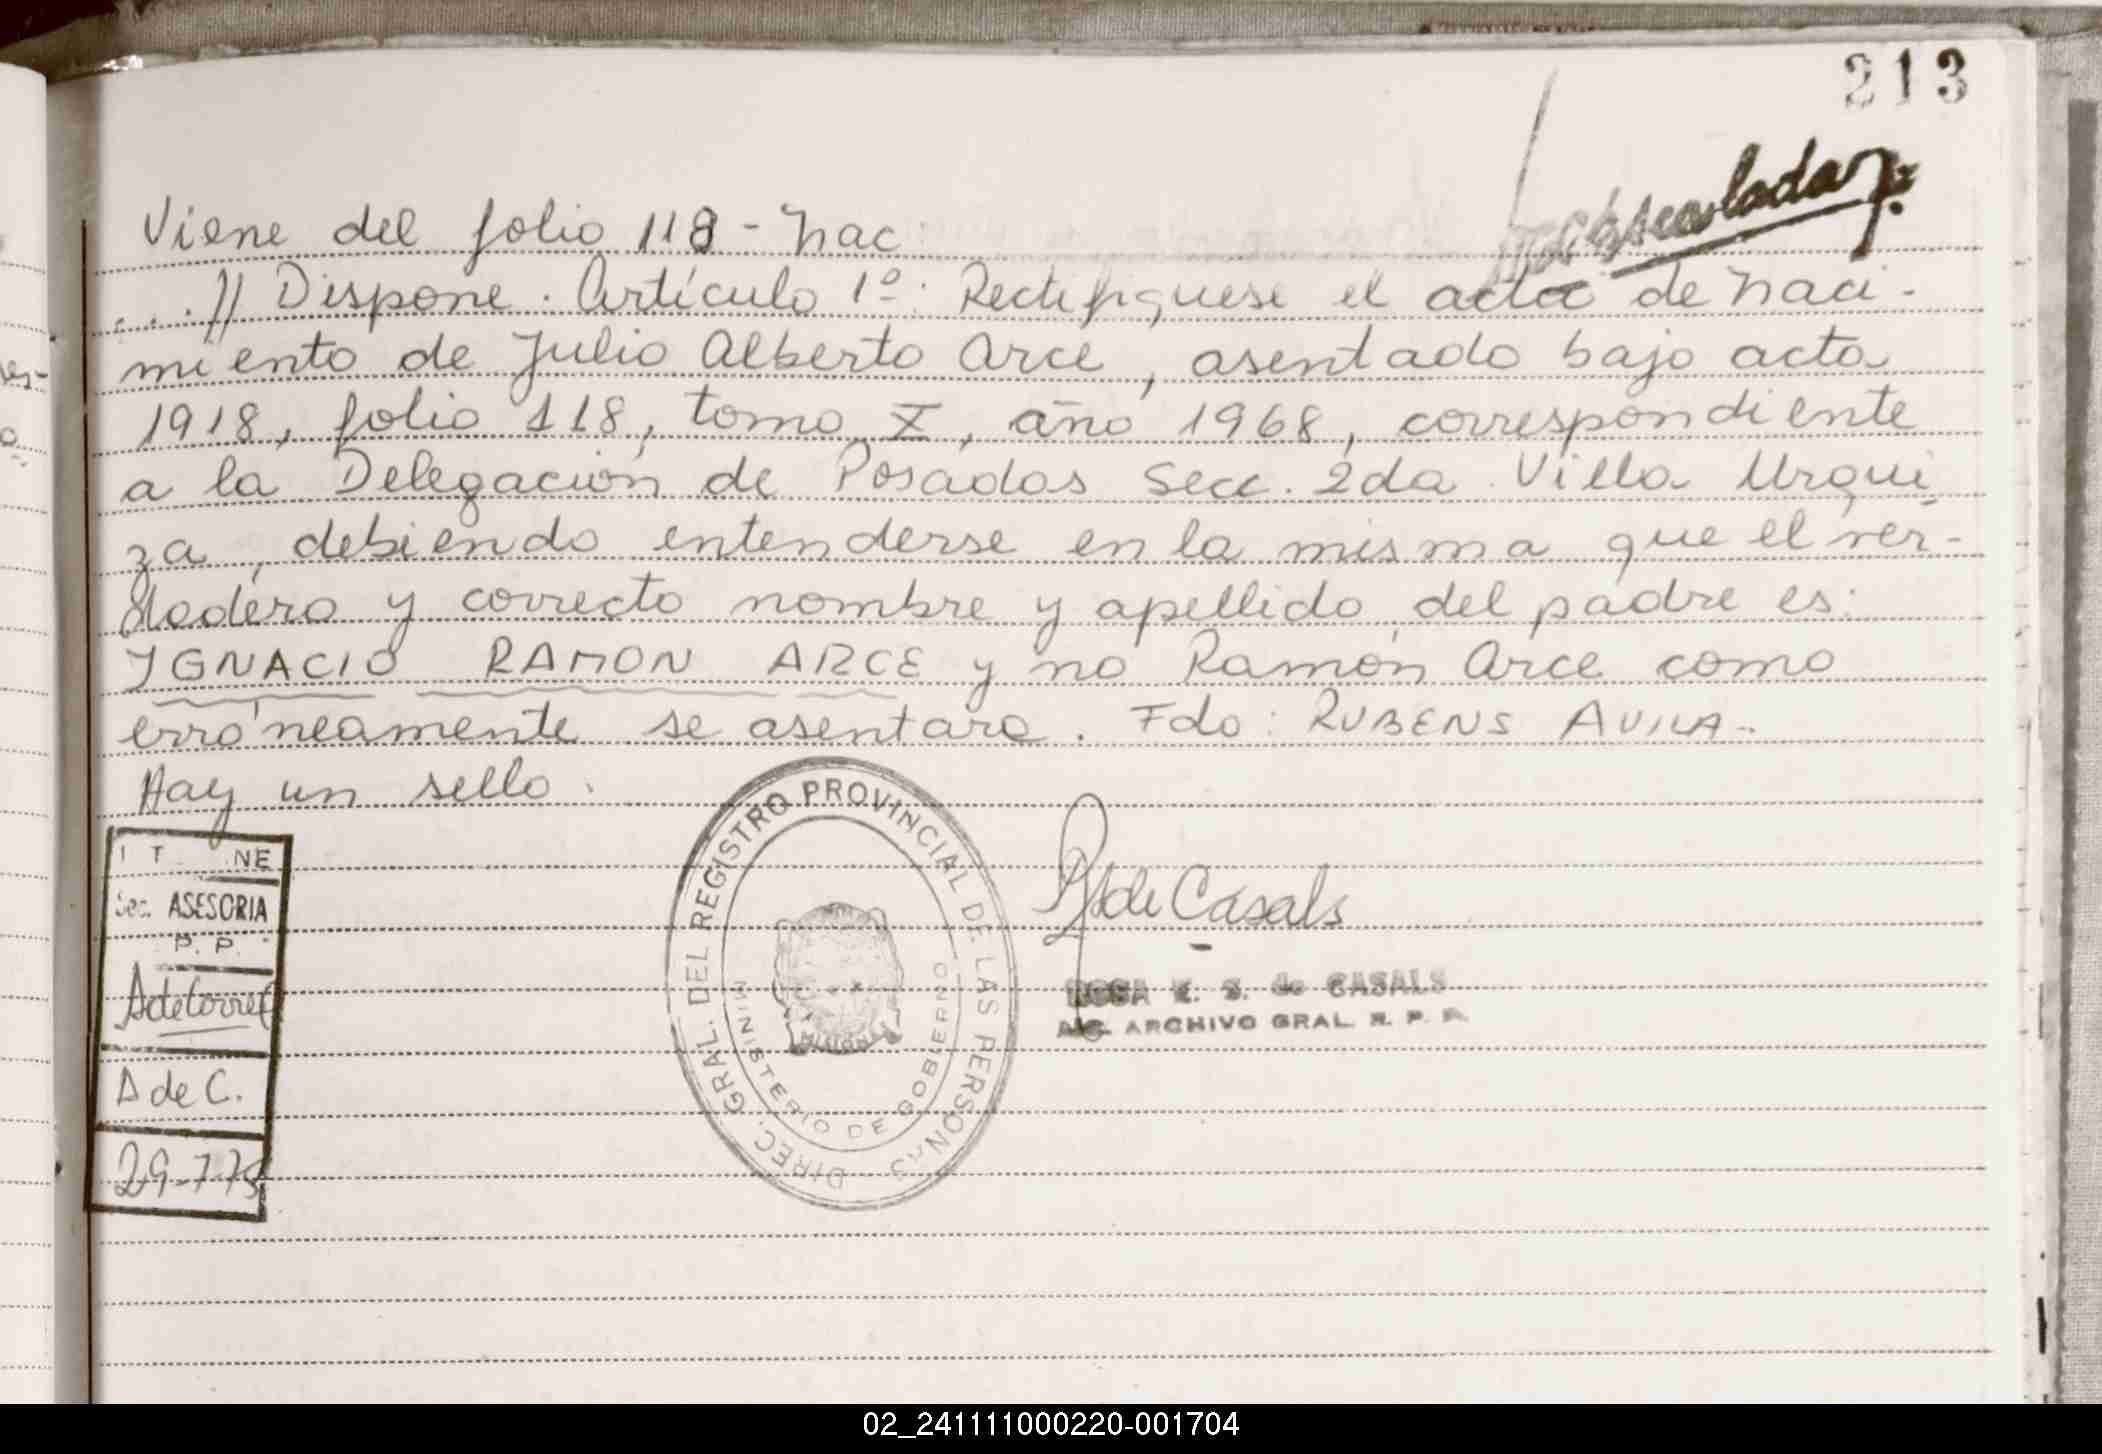 213
Viene del folio 118 - Nac
...// Dispone. Artículo 1º: Rectifíquese el acta de Naci-
miento de Julio Alberto Arce, asentado bajo acta
1918, folio 118, tomo X, año 1968, correspondiente
a la Delegación de Posadas Secc. 2da Villa Urqui
za, debiendo entenderse en la misma que el ver-
dadero y correcto nombre y apellido del padre es:
IGNACIO RAMON ARCE y no Ramón Arce como
erróneamente se asentara. Fdo: RUBENS AVILA-
Hay un sello.
NE
Sec. ASESORIA
P. P.
A de C.
29-7-75
DIREC. GRAL. DEL REGISTRO PROVINCIAL DE LAS PERSONAS
MINISTERIO DE GOBIERNO
de Casals
ROSA E. S. de CASALS
ARCHIVO GRAL. R. P. P.
02_241111000220-001704